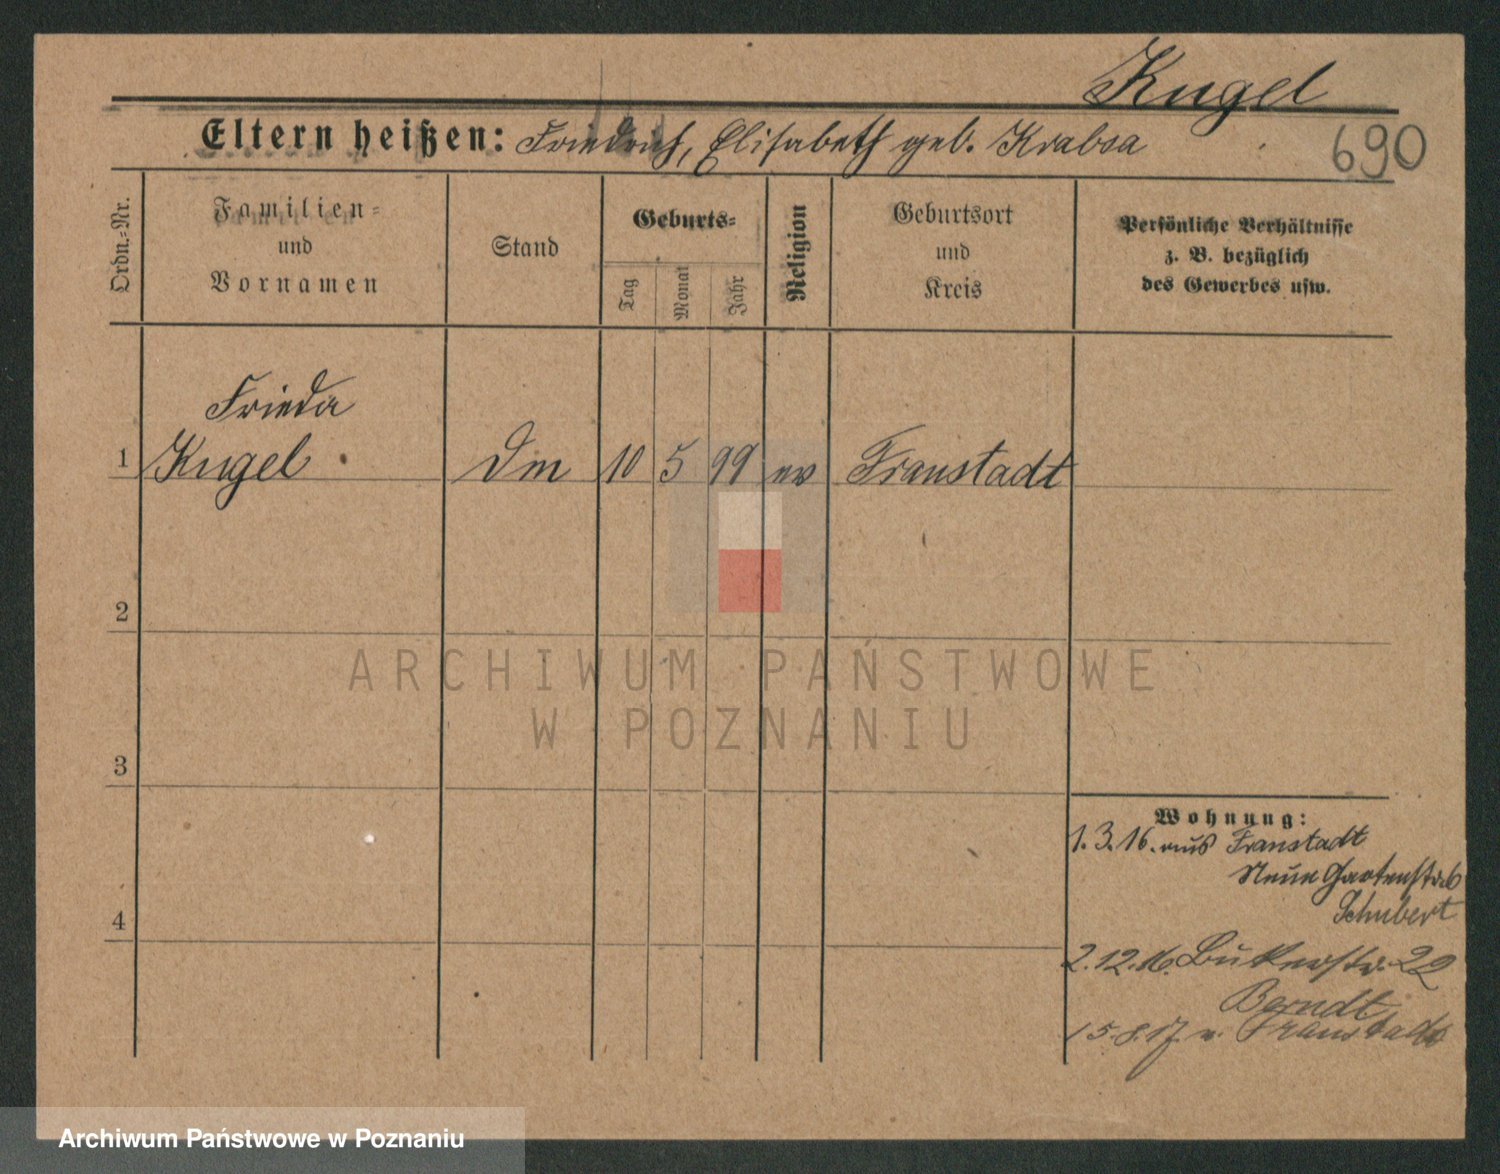 Kugel
Eltern heißen: Friedrich, Elisabeth geb. Krabsa
690
Ordn.-Nr.
Familien-
und
Vornamen
Stand
Geburts-
Tag
Monat
Jahr
Religion
Geburtsort
und
Kreis
Persönliche Verhältnisse
z. B. bezüglich
des Gewerbes usw.
Frieda
1 Kugel Dm 10 5 99 ev Fraustadt
2
3
4
Wohnung:
1.3.16. aus Fraustadt
Neue Gartenstr. 6
Schubert
2.12.16. Bukerstr. 22
Berndt
15.8.17 n. Fraustadt
ARCHIWUM PAŃSTWOWE
W POZNANIU
Archiwum Państwowe w Poznaniu